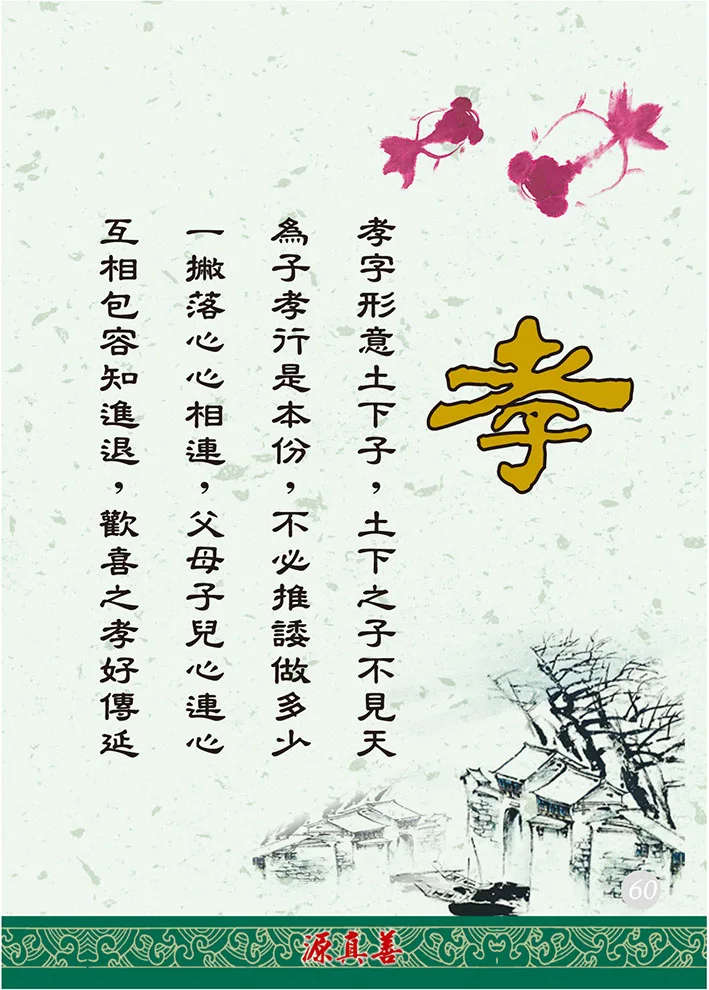 孝
孝字形意土下子，土下之子不見天
為子孝行是本份，不必推諉做多少
一撇落心心相連，父母子兒心連心
互相包容知進退，歡喜之孝好傳延
60
源真善